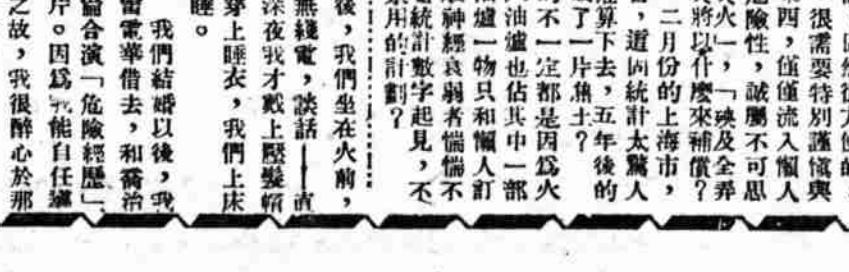 很需要特別謹慎與
危險性，誠屬不可思
第四，僅僅流入懶人
火一，「殃及全弄
將以什麼來補償？
二月份的上海市，
，這個統計太驚人
算下去，五年後的
了一片焦土？
的不一定都是因爲火
油爐也佔其中一部
油爐一物只和懶人訂
神經衰弱者惴惴不
統計數字起見，不
用的計劃？
後，我們坐在火前，
無綫電，談話——直
深夜我才戴上壓髮帽
穿上睡衣，我們上床
睡。
我們結婚以後，我
雷電華借去，和喬治
倫合演「危險經歷」
片。因爲我能自任
之故，我很醉心於那